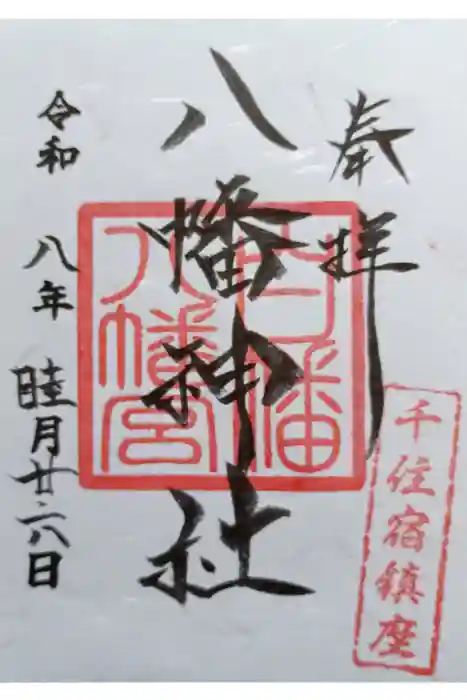 奉拝
千住宿鎮座
八幡神社
白幡
八幡宮
令和八年睦月廿六日